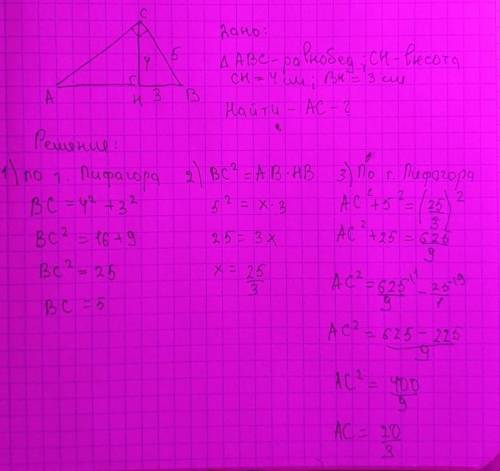 C
5
4
A
H
3
B
Дано:
△ABC - равнобед ; CH - высота
CH = 4 см ; BH = 3 см
Найти - AC - ?
Решение:
1) по т. Пифагора
BC = 4² + 3²
BC² = 16 + 9
BC² = 25
BC = 5
2) BC² = AB · HB
5² = x · 3
25 = 3x
x = 25/3
3) По т. Пифагора
AC² + 5² = (25/3)²
AC² + 25 = 625/9
AC² = 625/9 - 25/1
AC² = 625 - 225/9
AC² = 400/9
AC = 20/3